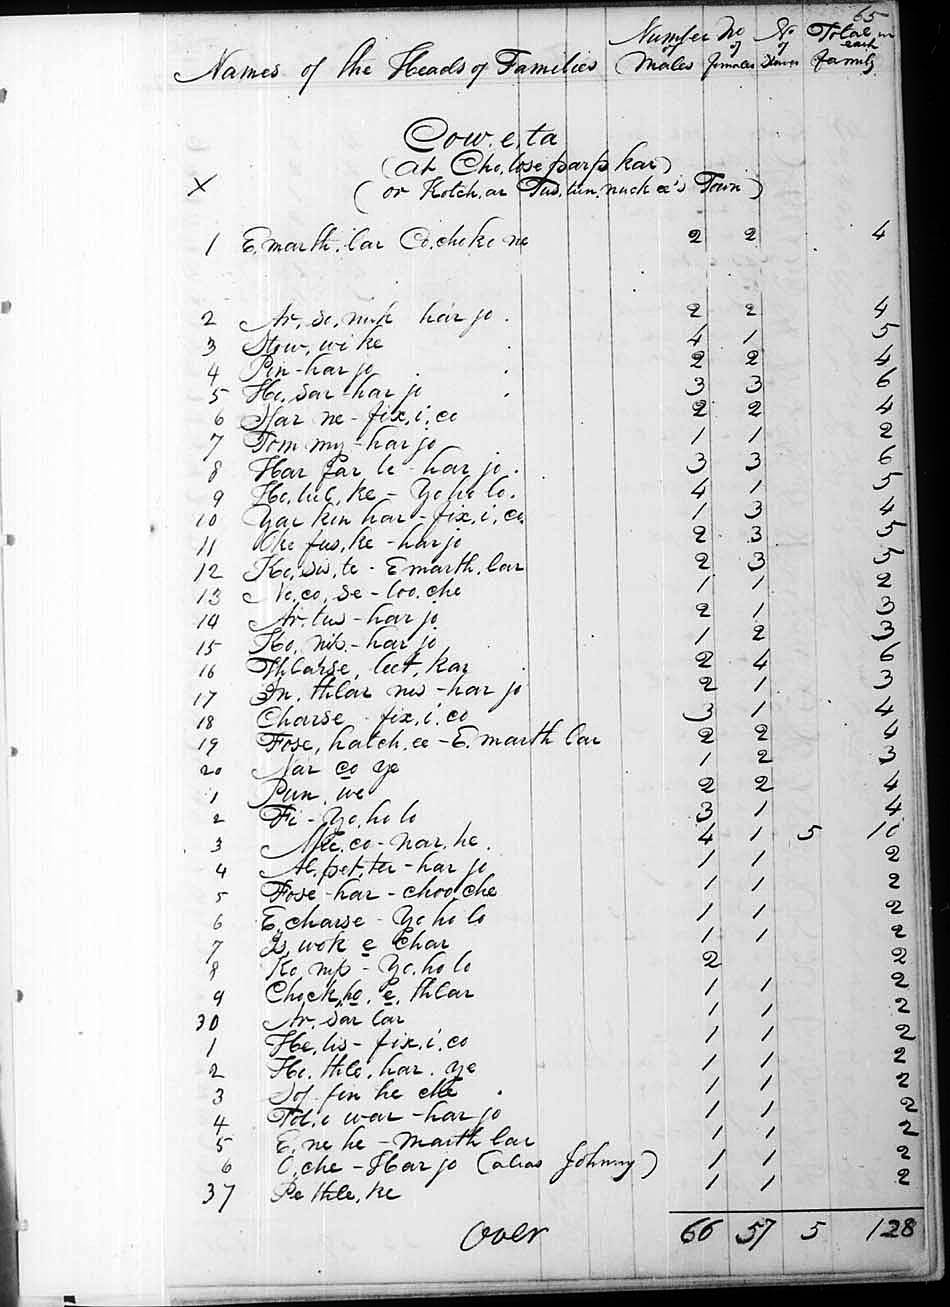 65
Names of the Heads of Families Number of Males No of females No of Slaves Total in each family
Cow.e,ta
(at Cho,lose parp kar)
X (or Kotch,ar Tus,tun,nuck ee's Town)
1 E,marth,lar Co,choko ne 2 2 4
2 Ar,so,nuk harjo. 2 2 4
3 Stow,wi ke 4 1 5
4 Pin-harjo 2 2 4
5 Ho,sar-harjo 3 3 6
6 Nar ne-fix,i,co 2 2 4
7 Tom my-harjo 1 1 2
8 Har par le-harjo. 3 3 6
9 Ho,lul,ke-Yoholo. 4 1 5
10 Yar kin har-fix,i,co 1 3 4
11 Oke fus,ke-harjo 2 3 5
12 Ko,sis,te-Emarth,lar 2 3 5
13 No,co,se-loo,che 1 1 2
14 Ar.tus-harjo 2 1 3
15 Ko,nip-harjo 1 2 3
16 Thlarse,leet,kar 2 4 6
17 In,thlar nis-harjo 2 1 3
18 Charse fix,i,co 3 1 4
19 Fose,hatch,ee-E,marth lar 2 2 4
20 Nar co ye 1 2 3
1 Pun,we 2 2 4
2 Fi-Yo,ho lo 3 1 4
3 Mic,co-nar,he. 4 1 5 10
4 Al,pet,ter-harjo 1 1 2
5 Fose-har-choo,che 1 1 2
6 E,charse-Yo ho lo 1 1 2
7 Is,wok e Char 1 1 2
8 Ko,nip-Yo,ho lo 2 2
9 Chock,ho,e,thlar 1 1 2
30 Ar,sar lar 1 1 2
1 He,lis-fix,i,co 1 1 2
2 Ho,thle,har,ye 1 1 2
3 Sof fin he che 1 1 2
4 Tol,o war-harjo 1 1 2
5 E,ne he-marth lar 1 1 2
6 O,che-Harjo (alias Johnny) 1 1 2
37 Pe thle,ke 1 1 2
Over 66 57 5 128